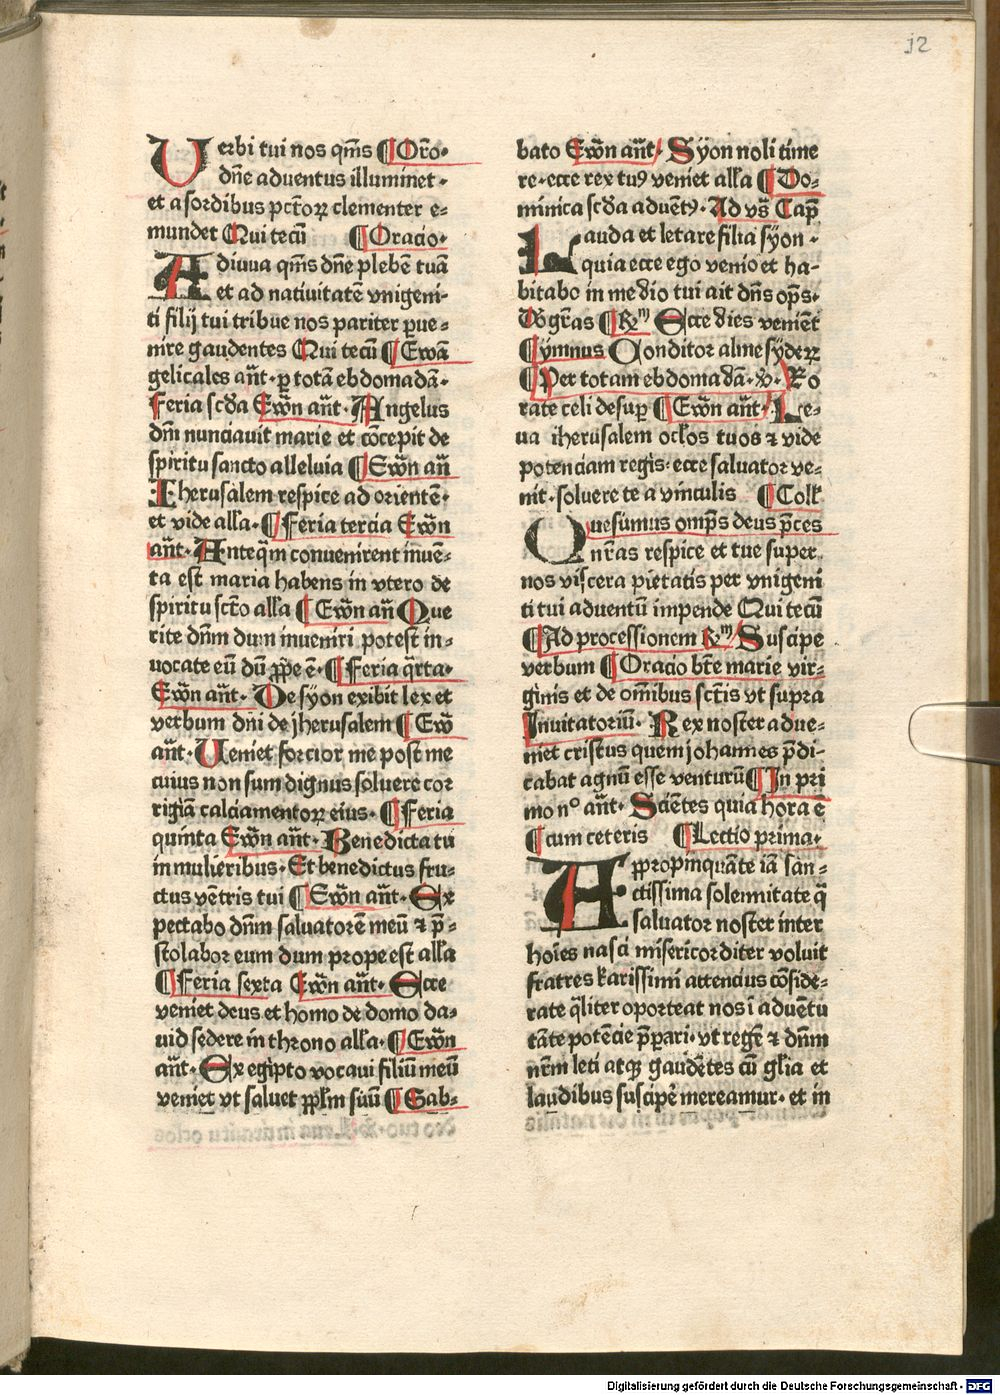 12
Uerbi tui nos qm̃s ¶Orõ·
dñe aduentus illuminet·
et a sordibus pctõꝝ clementer e-
mundet Qui tecũ ¶Oracio·
Adiuua qm̃s dñe plebẽ tuã
et ad natiuitatẽ vnigeni-
ti filij tui tribue nos pariter ꝑue-
nire gaudentes Qui tecũ ¶Ewã
gelicales añt· ꝑ totã ebdomadã·
Feria scđa Ewñ añt· Angelus
dñi nunciauit marie et cõcepit de
spiritu sancto alleluia ¶Ewñ añ
Iherusalem respice ad orientẽ·
et vide alľa· ¶Feria tercia Ewñ
añt· Anteq̃m conuenirent inuẽ-
ta est maria habens in vtero de
spiritu scto alľa ¶Ewñ añ Que
rite dñm dum inueniri potest in-
uocate eũ dũ ꝓpe ẽ· ¶Feria q̃rta·
Ewñ añt· De syon exibit lex et
verbum dñi de jherusalem ¶Ewñ
añt· Ueniet forcior me post me
cuius non sum dignus soluere cor
rigiã calciamentoꝝ eius· ¶Feria
quinta Ewñ añt· Benedicta tu
in mulieribus· Et benedictus fru-
ctus vẽtris tui ¶Ewñ añt· Ex
pectabo dñm saluatorẽ meũ ⁊ p̃-
stolabor eum dum prope est alľa
¶Feria sexta Ewñ añt· Ecce
veniet deus et homo de domo da-
uid sedere in throno alľa· ¶Ewñ
añt· Ex egipto vocaui filiũ meũ
veniet vt saluet ppľm suũ ¶Sab-
bato Ewñ añt Syon noli time
re·ecce rex tuꝰ veniet alľa ¶Do-
minica scđa aduẽtꝰ· Ad vs̃ Cap̃
Lauda et letare filia syon·
quia ecce ego venio et ha-
bitabo in medio tui ait dñs op̃s·
Dõ gr̃as ¶Rm Ecce dies veniẽt
¶Ymnus Conditor alme syderꝝ
¶Per totam ebdomadã· ꝟ· Ro
rate celi desuꝑ ¶Ewñ añt Le-
ua iherusalem ocľos tuos ⁊ vide
potenciam regis· ecce saluator ve-
nit· soluere te a vinculis ¶Colľ
Quesumus omp̃s deus p̃ces
nr̃as respice et tue super
nos viscera pietatis per vnigeni
ti tui aduentũ impende Qui tecũ
¶Ad processionem Rm Suscipe
verbum ¶Oracio bt̃e marie vir-
ginis et de omñibus sctĩs vt supra
Inuitatoriũ· Rex noster adue-
niet cristus quem johannes p̃di-
cabat agnũ esse venturũ ¶In pri
mo nº añt· Sciẽtes quia hora ẽ
¶cum ceteris ¶Lectio prima·
Appropinquãte iã san-
ctissima solemnitate q̃
saluator noster inter
hoĩes nasci misericorditer voluit
fratres karissimi attencius cõside-
rate q̃liter oporteat nos ĩ aduẽtu
tãte potẽcie p̃parari· vt regẽ ⁊ dñm
nr̃m leti atqꝫ gaudẽtes cũ gľia et
laudibus suscipẽ mereamur· et in
Digitalisierung gefördert durch die Deutsche Forschungsgemeinschaft - DFG